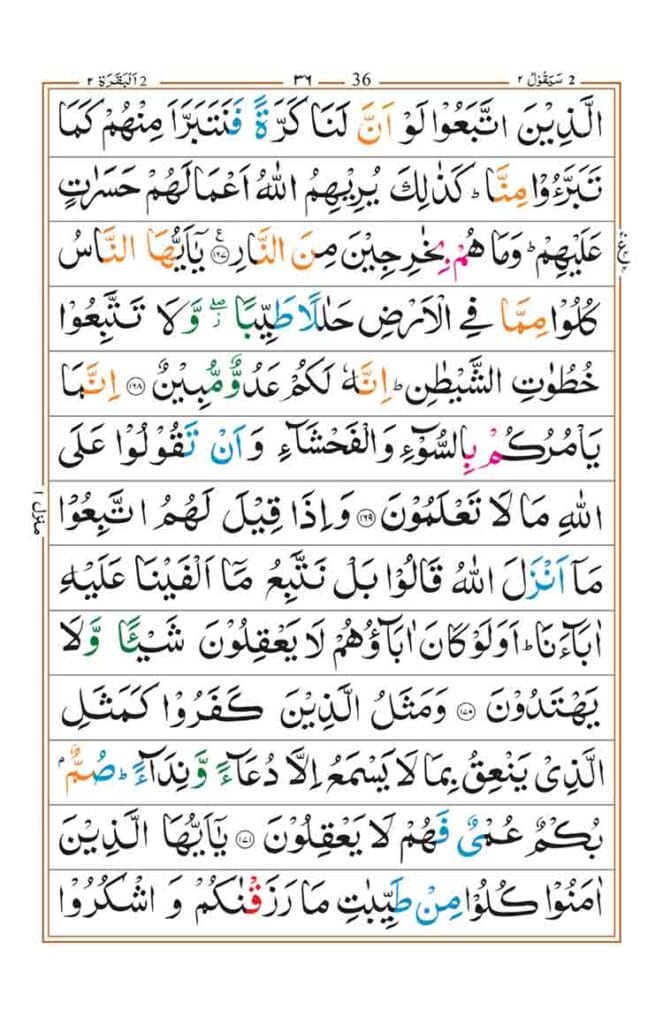 2 سَيَقُوْلُ ٢
36
٣٦
2 اَلْبَقَرَة ٢
الَّذِيْنَ اتَّبَعُوْا لَوْ اَنَّ لَنَا كَرَّةً فَنَتَبَرَّاَ مِنْهُمْ كَمَا
تَبَرَّءُوْا مِنَّا ؕ كَذٰلِكَ يُرِيْهِمُ اللّٰهُ اَعْمَالَهُمْ حَسَرٰتٍ
عَلَيْهِمْ ؕ وَمَا هُمْ بِخٰرِجِيْنَ مِنَ النَّارِ ۧ ﴿١٦٧﴾ يٰۤاَيُّهَا النَّاسُ
كُلُوْا مِمَّا فِي الْاَرْضِ حَلٰلًا طَيِّبًا ۖؗ وَّلَا تَتَّبِعُوْا
خُطُوٰتِ الشَّيْطٰنِ ؕ اِنَّهٗ لَكُمْ عَدُوٌّ مُّبِيْنٌ ﴿١٦٨﴾ اِنَّمَا
يَاْمُرُكُمْ بِالسُّوْٓءِ وَالْفَحْشَآءِ وَاَنْ تَقُوْلُوْا عَلَى
اللّٰهِ مَا لَا تَعْلَمُوْنَ ﴿١٦٩﴾ وَاِذَا قِيْلَ لَهُمُ اتَّبِعُوْا
مَاۤ اَنْزَلَ اللّٰهُ قَالُوْا بَلْ نَتَّبِعُ مَاۤ اَلْفَيْنَا عَلَيْهِ
اٰبَآءَنَا ؕ اَوَلَوْ كَانَ اٰبَآؤُهُمْ لَا يَعْقِلُوْنَ شَيْـًٔا وَّلَا
يَهْتَدُوْنَ ﴿١٧٠﴾ وَمَثَلُ الَّذِيْنَ كَفَرُوْا كَمَثَلِ
الَّذِيْ يَنْعِقُ بِمَا لَا يَسْمَعُ اِلَّا دُعَآءً وَّنِدَآءً ؕ صُمٌّۢ
بُكْمٌ عُمْيٌ فَهُمْ لَا يَعْقِلُوْنَ ﴿١٧١﴾ يٰۤاَيُّهَا الَّذِيْنَ
اٰمَنُوْا كُلُوْا مِنْ طَيِّبٰتِ مَا رَزَقْنٰكُمْ وَاشْكُرُوْا
منزل ١